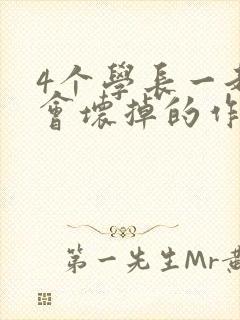 4个學長一
會壞掉的作
第一先生Mr黄